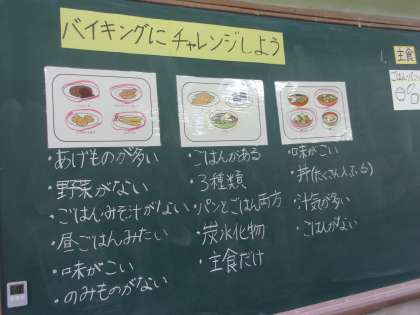 バイキングにチャレンジしよう
主食
ごはん・パン
・あげものが多い
・野菜がない
・ごはんみそ汁がない
・昼ごはんみたい
・味がこい
・のみものがない
・ごはんがある
・3種類
・パンとごはん両方
・炭水化物
・主食だけ
・味がこい
・丼(たくさん入ぶる)
・汁気が多い
・ごはんがない